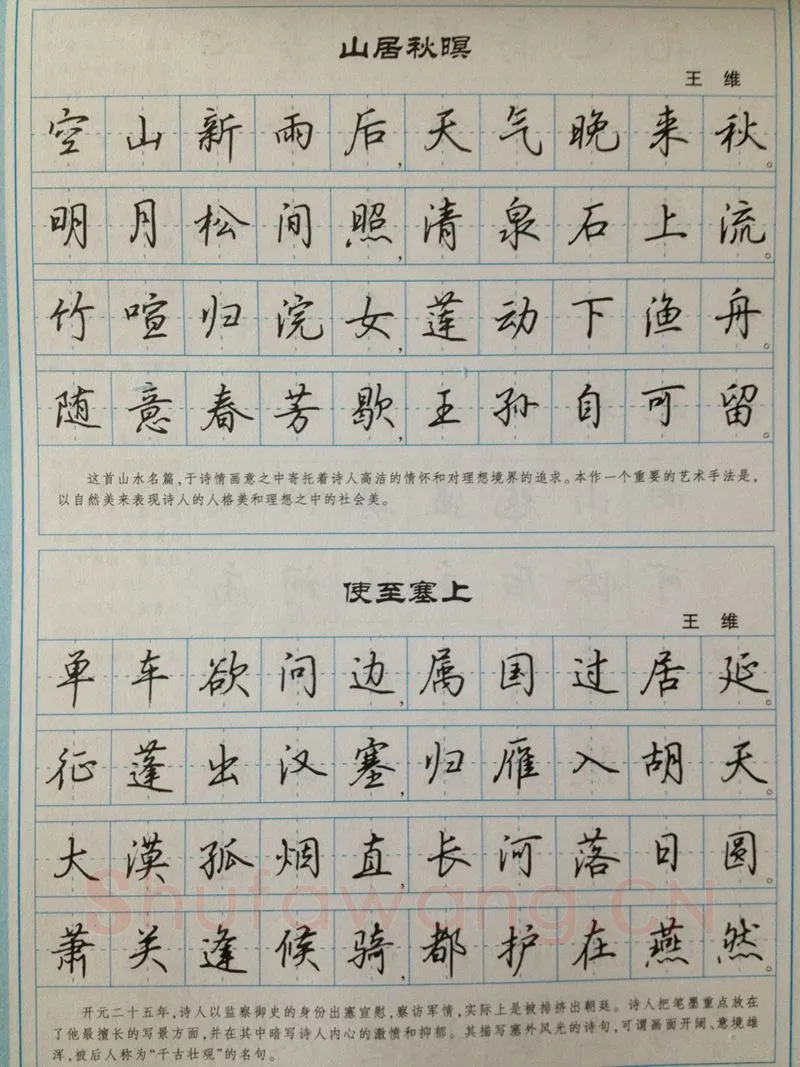 山居秋暝
王 维
空山新雨后,天气晚来秋。
明月松间照,清泉石上流。
竹喧归浣女,莲动下渔舟。
随意春芳歇,王孙自可留。
这首山水名篇,于诗情画意之中寄托着诗人高洁的情怀和对理想境界的追求。本作一个重要的艺术手法是,
以自然美来表现诗人的人格美和理想之中的社会美。
使至塞上
王 维
单车欲问边,属国过居延。
征蓬出汉塞,归雁入胡天。
大漠孤烟直,长河落日圆。
萧关逢候骑,都护在燕然。
Shufawang.CN
开元二十五年,诗人以监察御史的身份出塞宣慰,察访军情,实际上是被排挤出朝廷。诗人把笔墨重点放在
了他最擅长的写景方面,并在其中暗写诗人内心的激愤和抑郁。其描写塞外风光的诗句,可谓画面开阔、意境雄
浑,被后人称为“千古壮观”的名句。